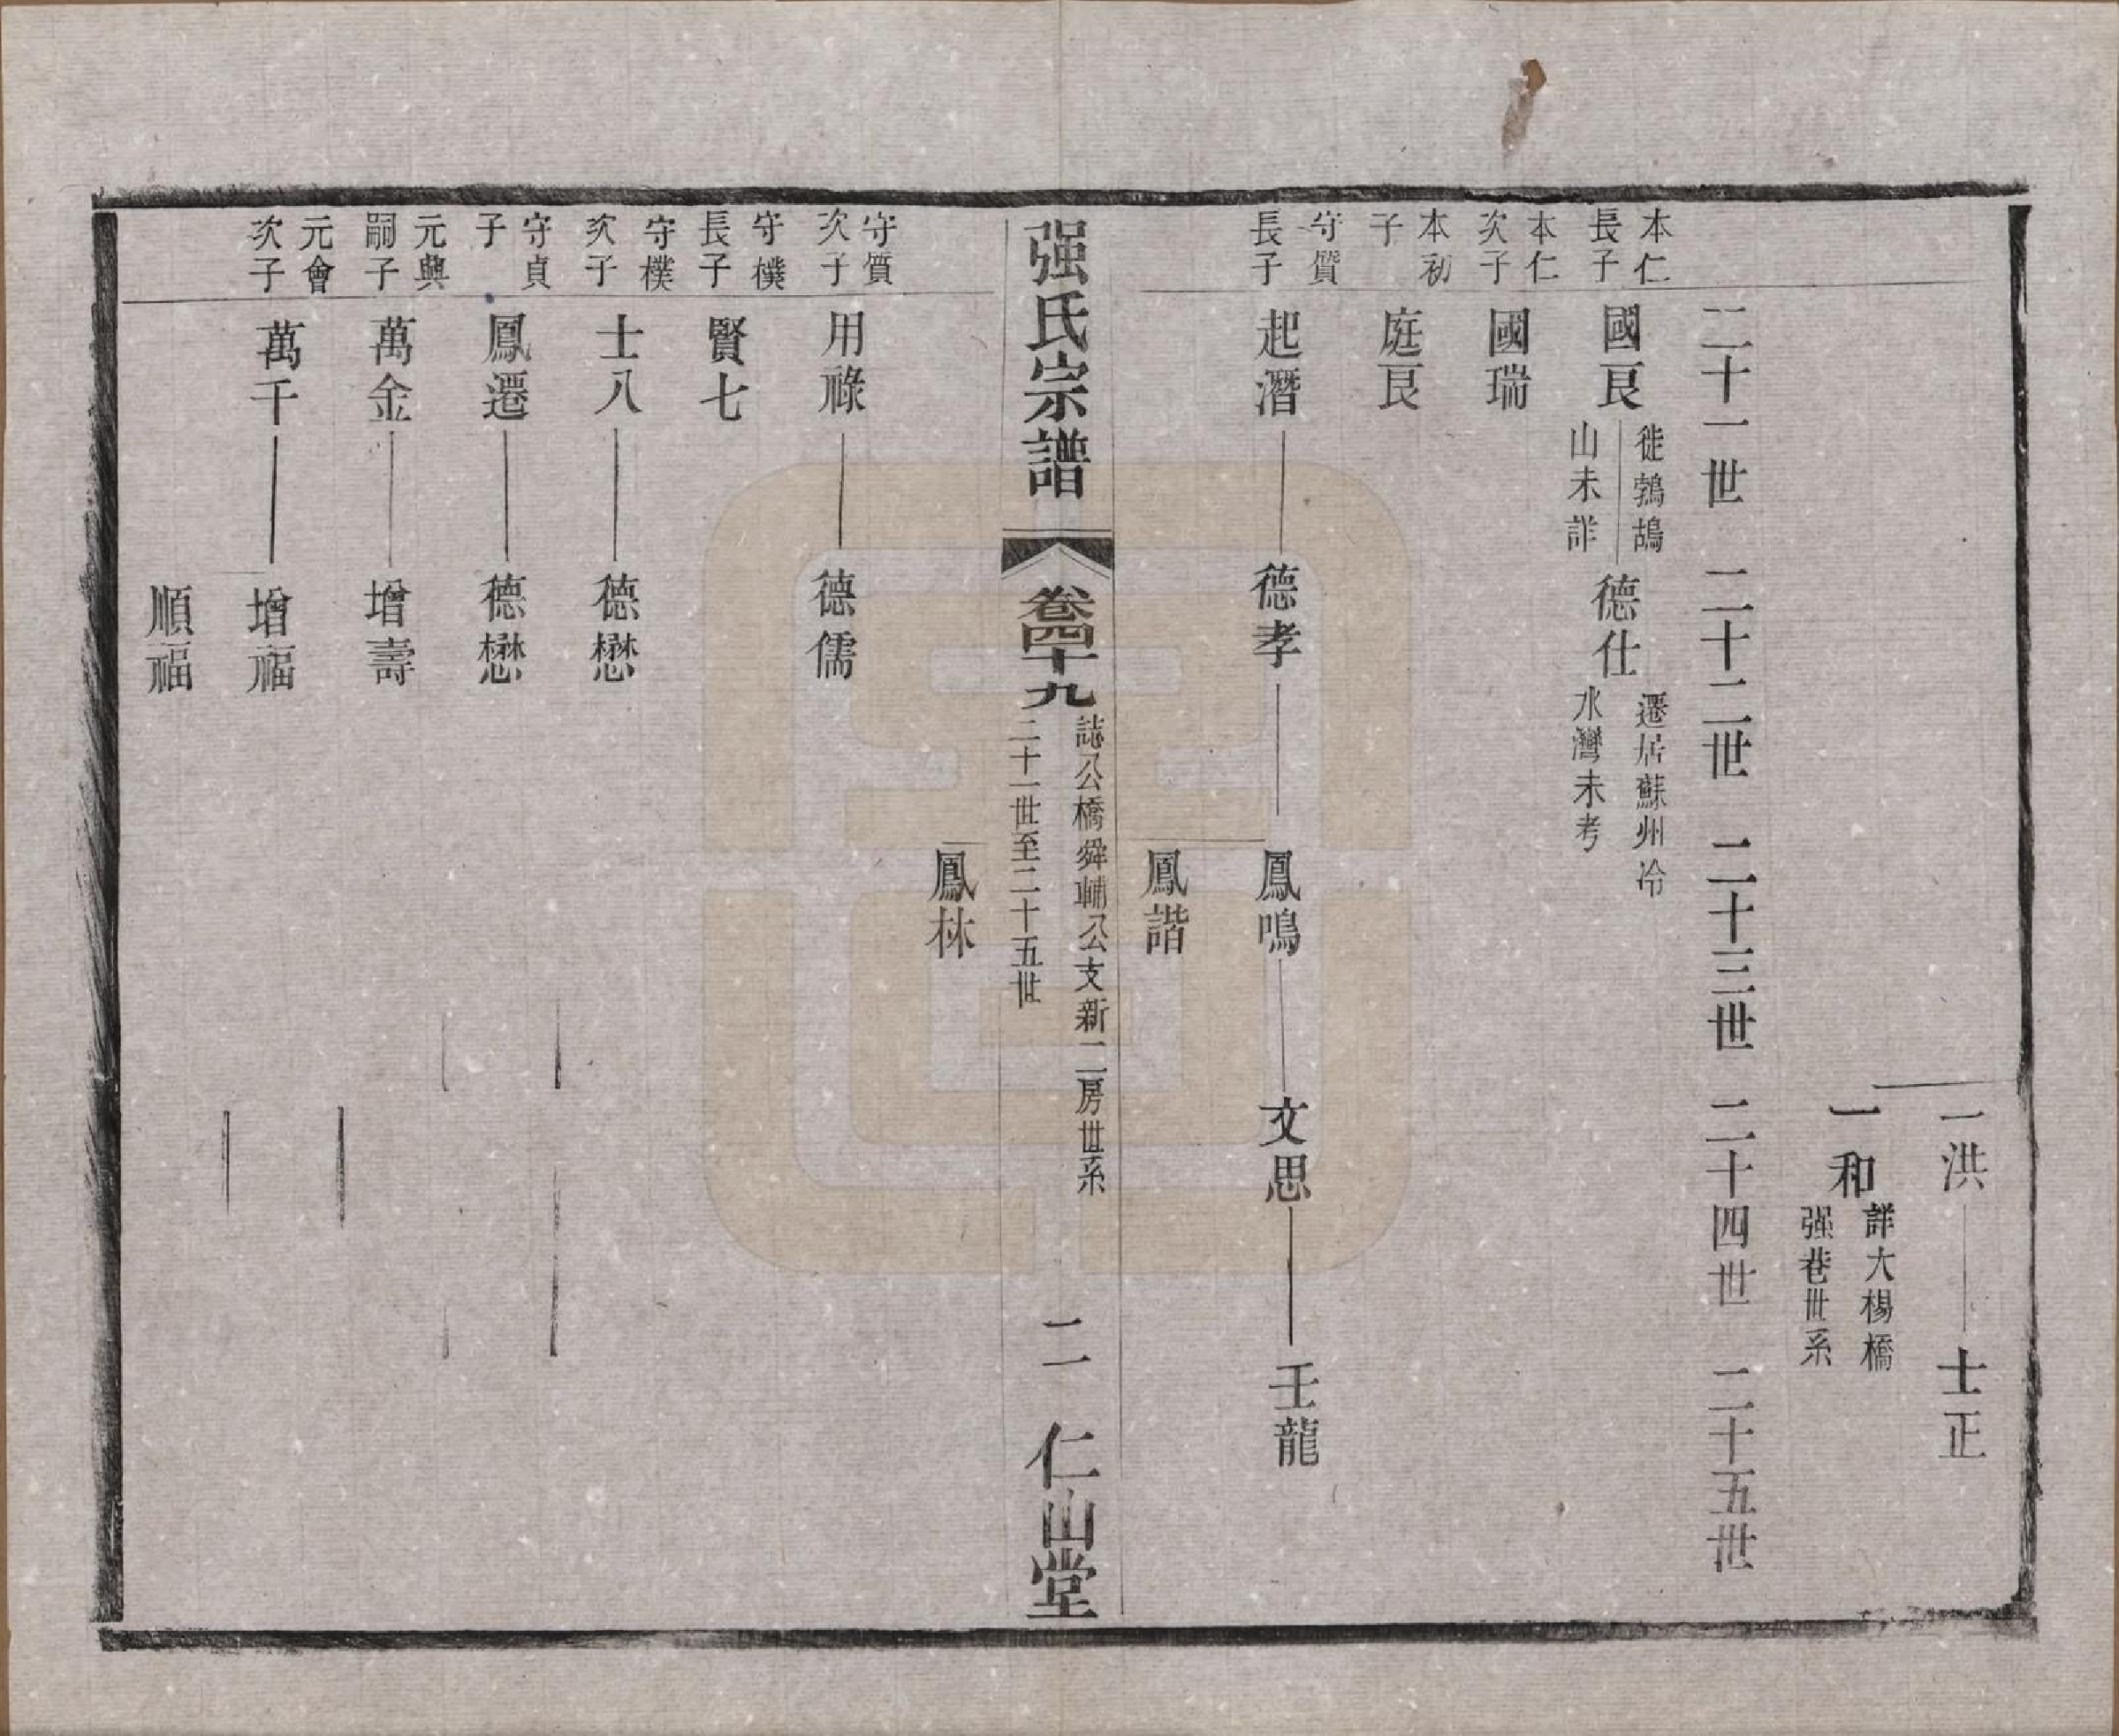 一洪　士正
一和　詳大楊橋
强巷世系
二十一世　二十二世　二十三世　二十四世　二十五世
本仁
長子
國良　徙鵓鴣
山未詳
德仕　遷居蘇州冷
水灣未考
本仁
次子
國瑞
本初
子
庭良
守質
長子
起潛　德孝　鳳鳴　文思　壬龍
鳳諧
强氏宗譜　卷四十九　誌公橋舜輔公支新二房世系
二十一世至二十五世　二　仁山堂
鳳林
守質
次子
用祿　德儒
守樸
長子
賢七
守樸
次子
士八　德懋
守貞
子
鳳遷　德懋
元興
嗣子
萬金　增壽
元會
次子
萬千　增福
順福